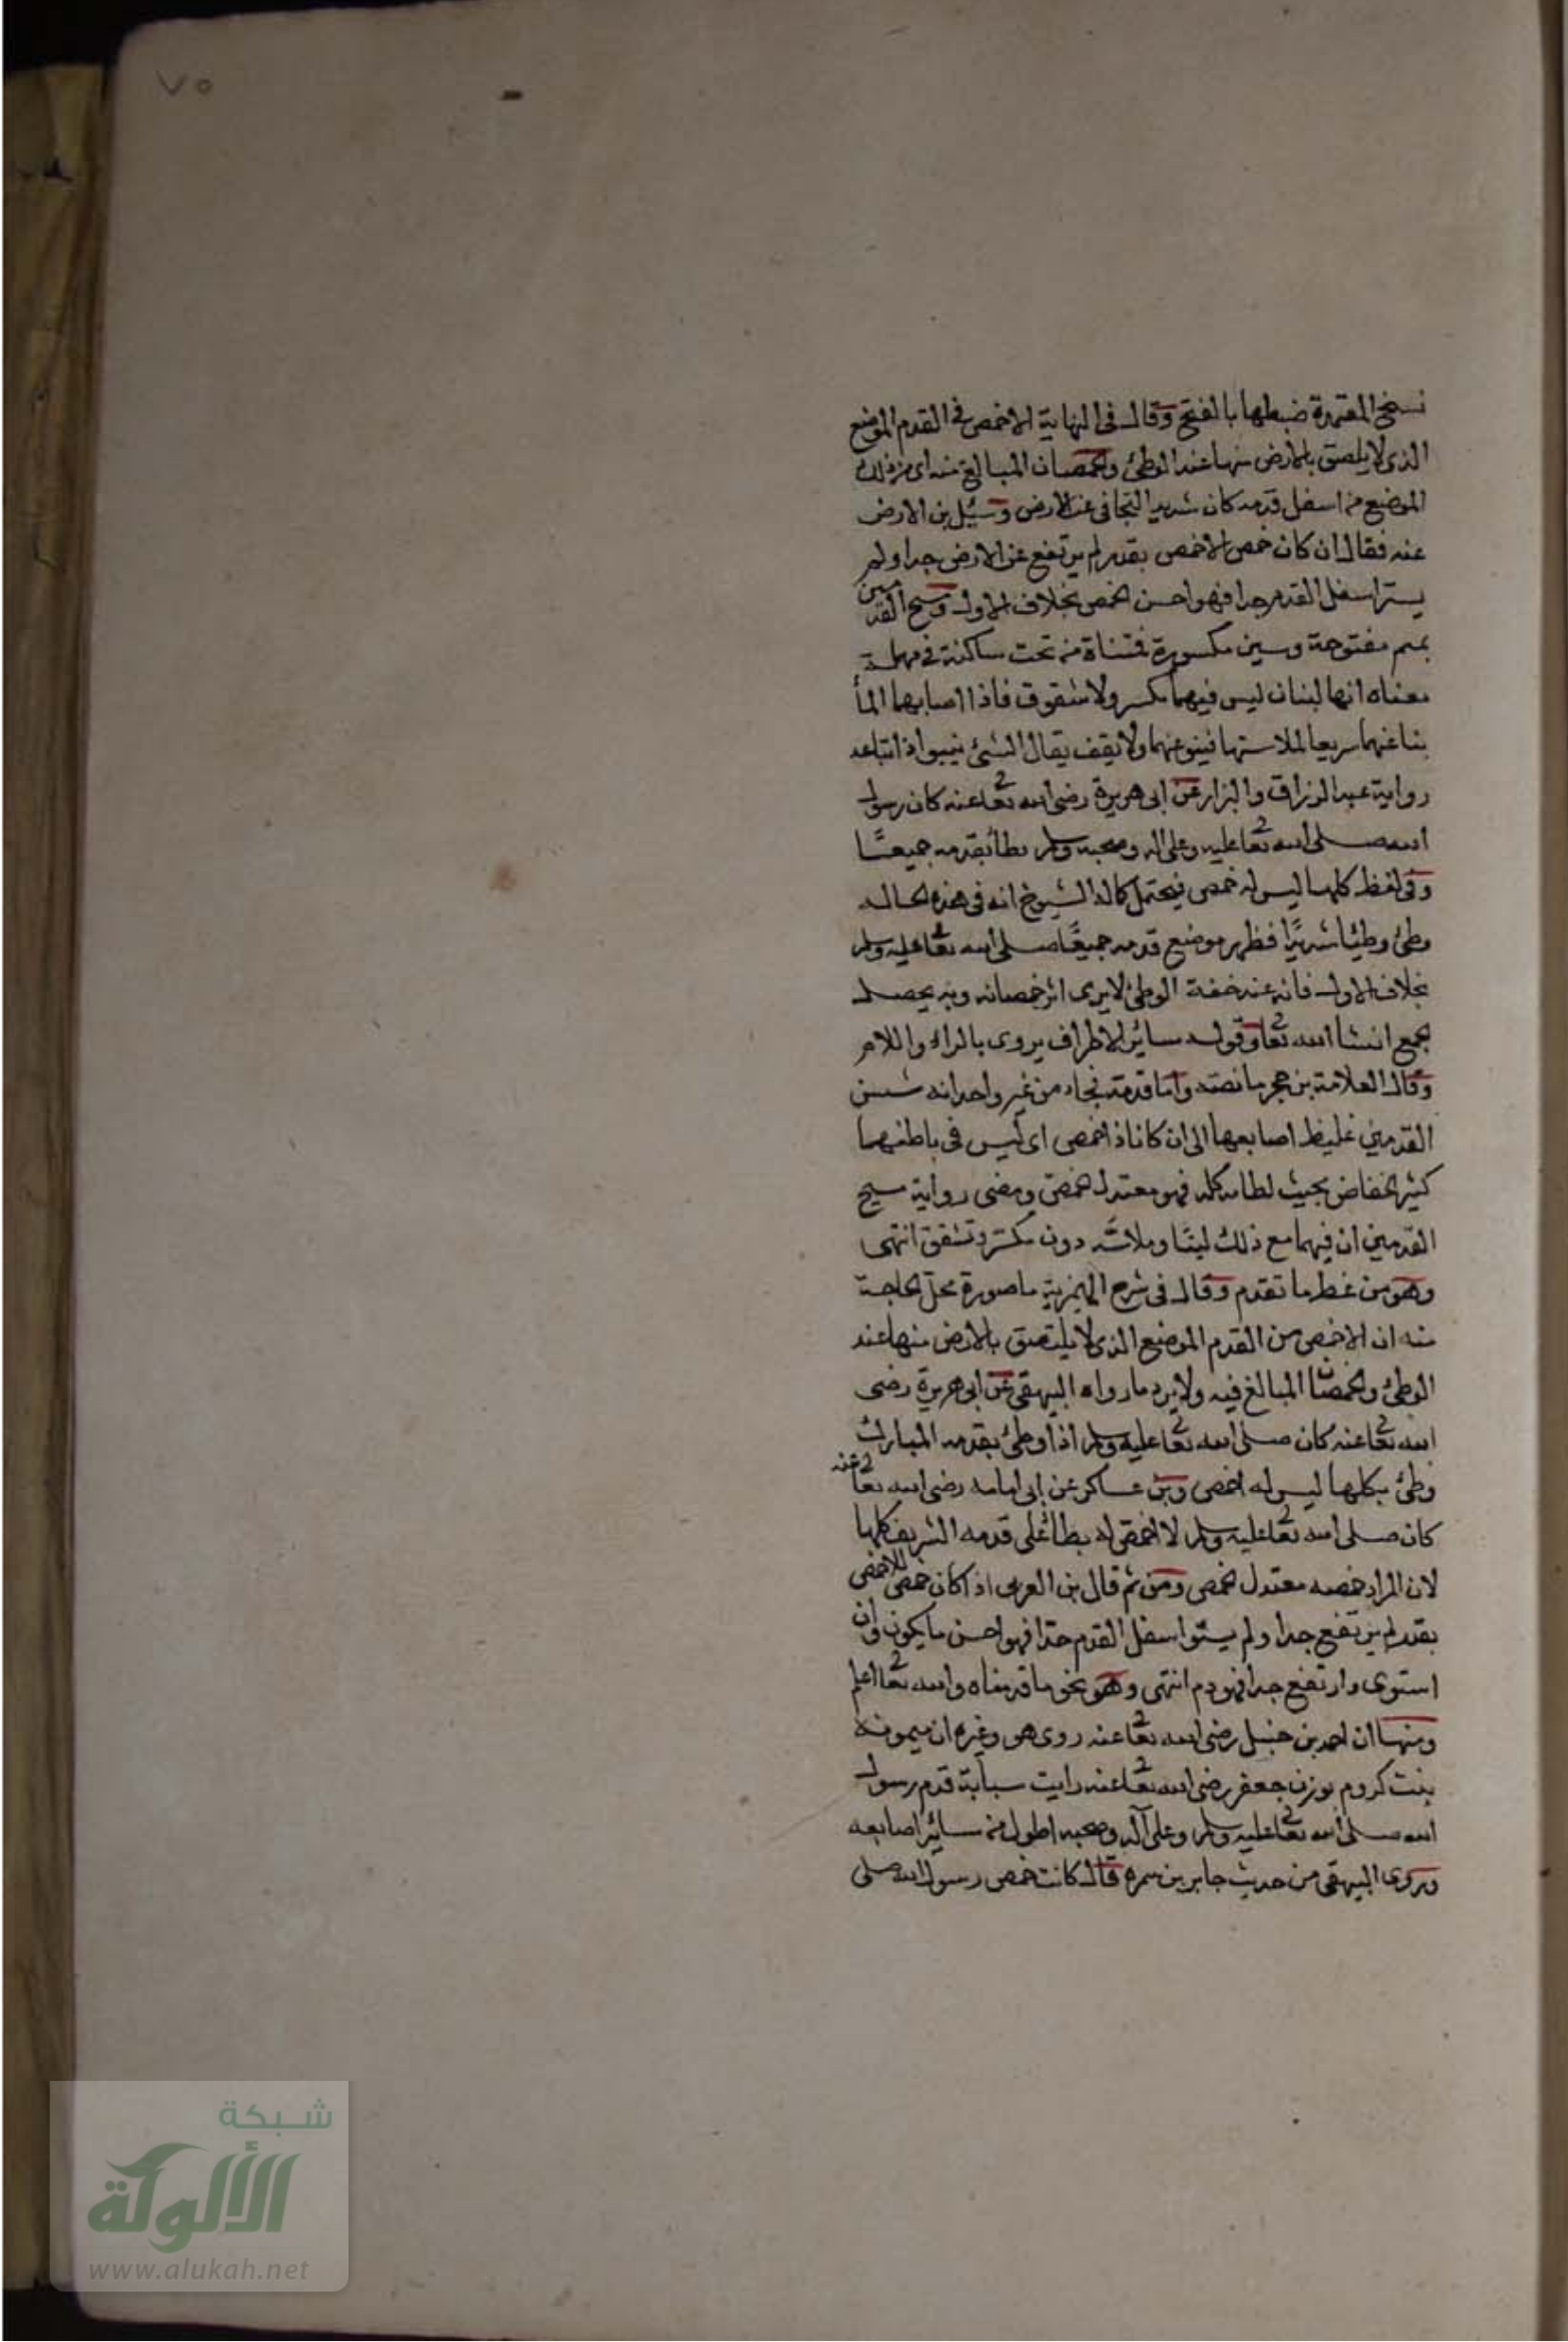 ٧٥
نسخ المعتمدة ضبطها بالفتح وقال فى النهاية الاخمص فى القدم الموضع
الذى لا يلصق بالارض منها عند الوطئ والخمصان المبالغ منه اى من ذلك
الموضع من اسفل قدمه كان شديد التجافى عن الارض وسئل بن الارض
عنه فقال ان كان خمص الاخمص بقدر لم يرتفع عن الارض جدا ولم
يستر اسفل القدم جدا فهو احسن الخمص بخلاف الاول ومسيح القدمين
بميم مفتوحة وسين مكسورة فمثناة من تحت ساكنة فمهملة
معناه انها لينان ليس فيهما تكسر ولا شقوق فاذا اصابهما الماء
بنا عنهما سريعا لملاستها فينبو عنهما ولا يقف يقال الشئ ينبو اذا تباعد
رواية عبد الرزاق والبزار عن ابى هريرة رضى الله تعالى عنه كان رسول
الله صلى الله تعالى عليه وعلى اله وصحبه وسلم يطأ بقدمه جميعًا
وفى لفظ كلها ليس له خمص فيحتمل كما له الشيوخ انه فى هذه الحاله
وطئ وطيئا شديدًا فظهر موضع قدمه جميعًا صلى الله تعالى عليه وسلم
بخلاف الاول فانه عند خفة الوطئ لا يرى اثر خمصانه وبه يحصل
الجمع انشا الله تعالى وقوله سائر الاطراف يروى بالراء واللام
وقال العلامة بن حجر ما نصه واما قدمه فجاء من غير واحد انه شسن
القدمين غليظ اصابعها الى ان كانا ذا اخمص اى ليس فى باطنهما
كثير انخفاض بحيث لطا به كله فهو معتدل الخمص ومضى رواية مسيح
القدمين ان فيهما مع ذلك لينًا وملاسّه دون تكسّر وتشقق انتهى
وهو من غط ما تقدم وقال فى شرح الهمزية ما صورة محل الحاجة
منه ان الاخمص من القدم الموضع الذى لا يلتصق بالارض منها عند
الوطئ والخمصان المبالغ فيه ولا يرد ما رواه البيهقى عن ابى هريرة رضى
الله تعالى عنه كان صلى الله تعالى عليه وسلم اذا وطئ بقدمه المبارك
وطئ بكلها ليس له اخمص وبن عساكر عن ابى امامه رضى الله تعالى عنه
كان صلى الله تعالى عليه وسلم لا اخمص له يطأ على قدمه الشريف كلها
لان المراد خمصه معتدل الخمص ومن ثم قال بن العربى اذا كان خمص الاخمص
بقدر لم يرتفع جدا ولم يستو اسفل القدم جدا فهو احسن ما يكون وان
استوى وارتفع جدا فهو ذم انتهى وهو نحو ما قدمناه والله تعالى اعلم
ومنها ان احمد بن حنبل رضى الله تعالى عنه روى هو وغيره ان ميمونه
بنت كردم بوزن جعفر رضى الله تعالى عنه رايت سبابة قدم رسول
الله صلى الله تعالى عليه وسلم وعلى آله وصحبه اطول من سائر اصابعه
وروى البيهقى من حديث جابر بن سمره قال كانت خمص رسول الله صلى
شبكة
الألوكة
www.alukah.net